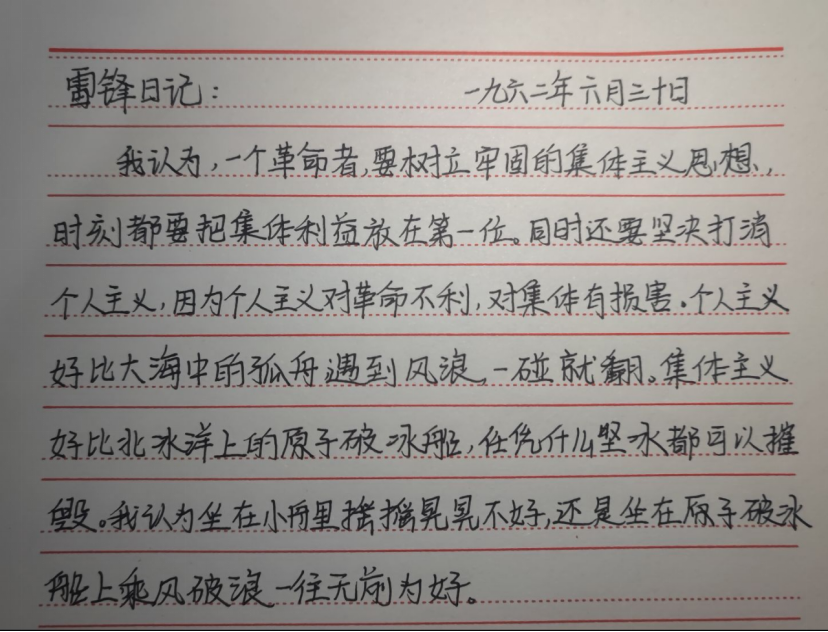 雷锋日记：一九六二年六月三十日
我认为，一个革命者，要树立牢固的集体主义思想，
时刻都要把集体利益放在第一位。同时还要坚决打消
个人主义，因为个人主义对革命不利，对集体有损害。个人主义
好比大海中的孤舟遇到风浪，一碰就翻。集体主义
好比北冰洋上的原子破冰船，任凭什么坚冰都可以摧
毁。我认为坐在小舟里摇摇晃晃不好，还是坐在原子破冰
船上乘风破浪一往无前为好。